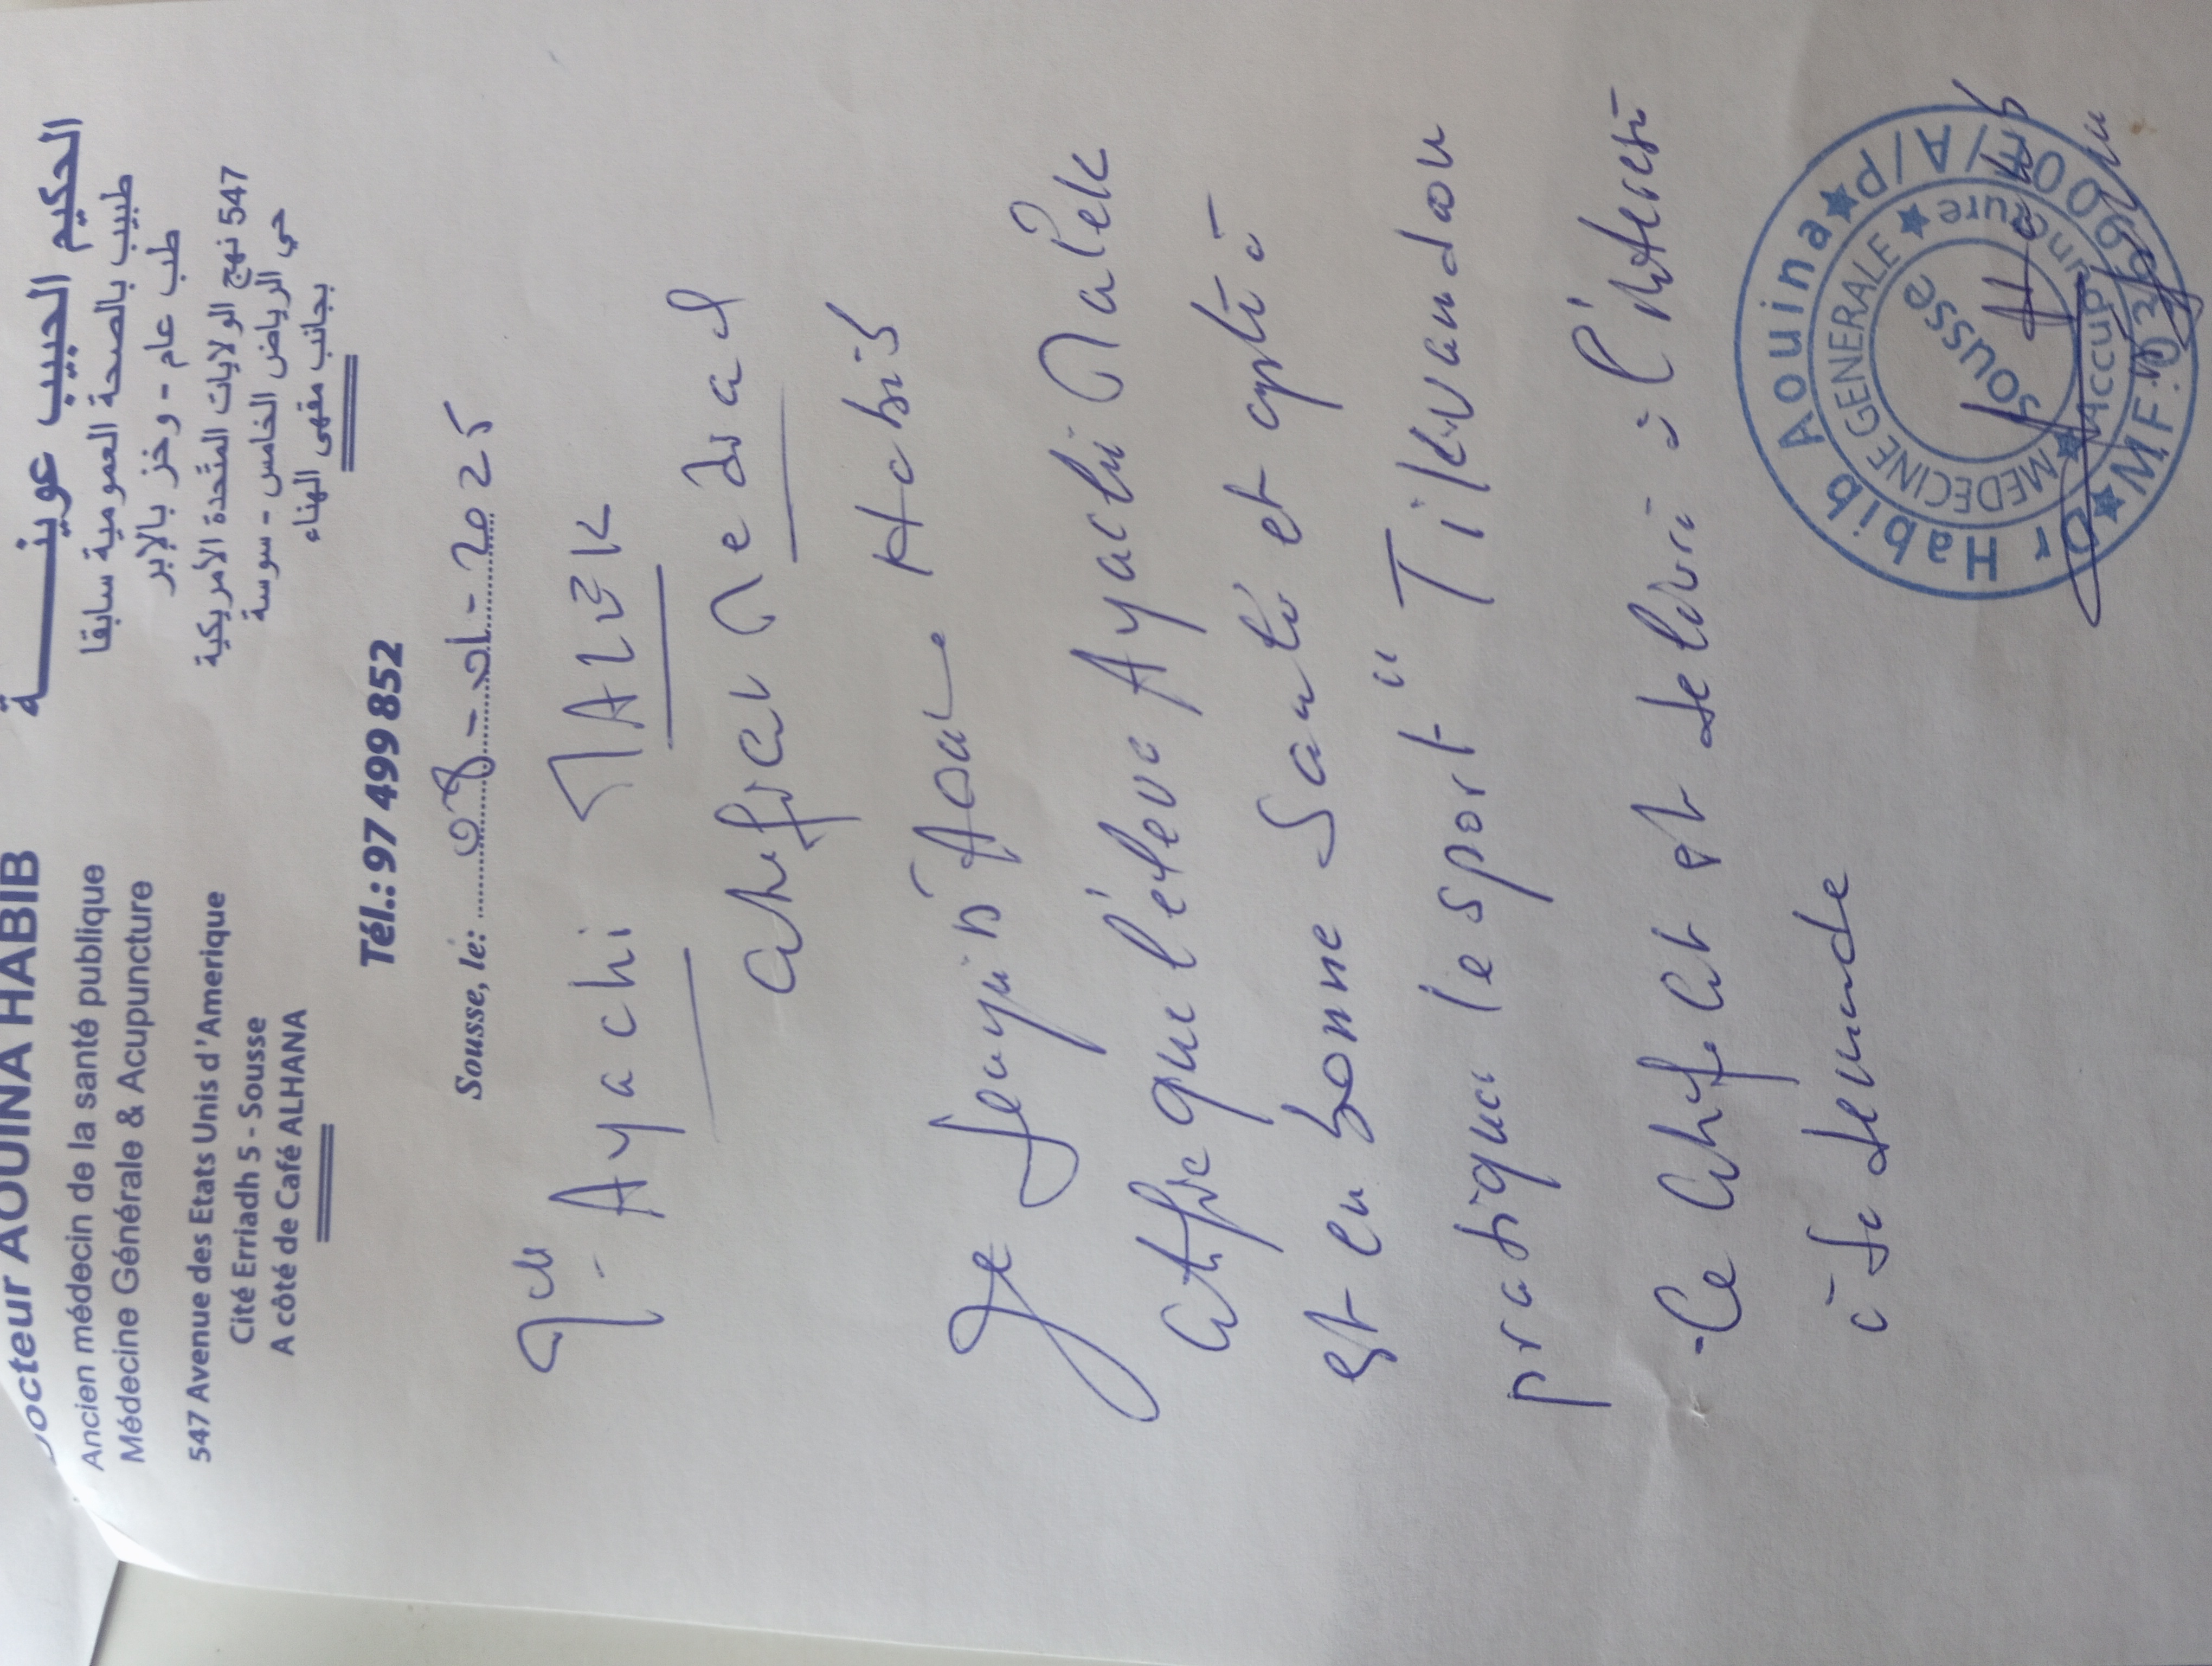 Docteur AOUINA HABIB
Ancien médecin de la santé publique
Médecine Générale & Acupuncture
547 Avenue des Etats Unis d'Amerique
Cité Erriadh 5 - Sousse
A côté de Café ALHANA
الحكيم الحبيب عوينـــــة
طبيب بالصحة العمومية سابقا
طب عام - وخز بالإبر
547 نهج الولايات المتّحدة الأمريكية
حي الرياض الخامس - سوسة
بجانب مقهى الهناء
Tél.: 97 499 852
Sousse, le: 08-01-2025
Ayachi MALEK
Certificat Medical
Je soussigné Aouina Habib
certifie que l'élève Ayachi Malek
est en bonne santé et apte à
pratiquer le sport "
- Ce certificat est délivré à l'intéressé
à sa demande
Dr Habib Aouina ★ P/A/
MEDECINE GENERALE ★ Accupuncture ★
Sousse
★ M.F.: